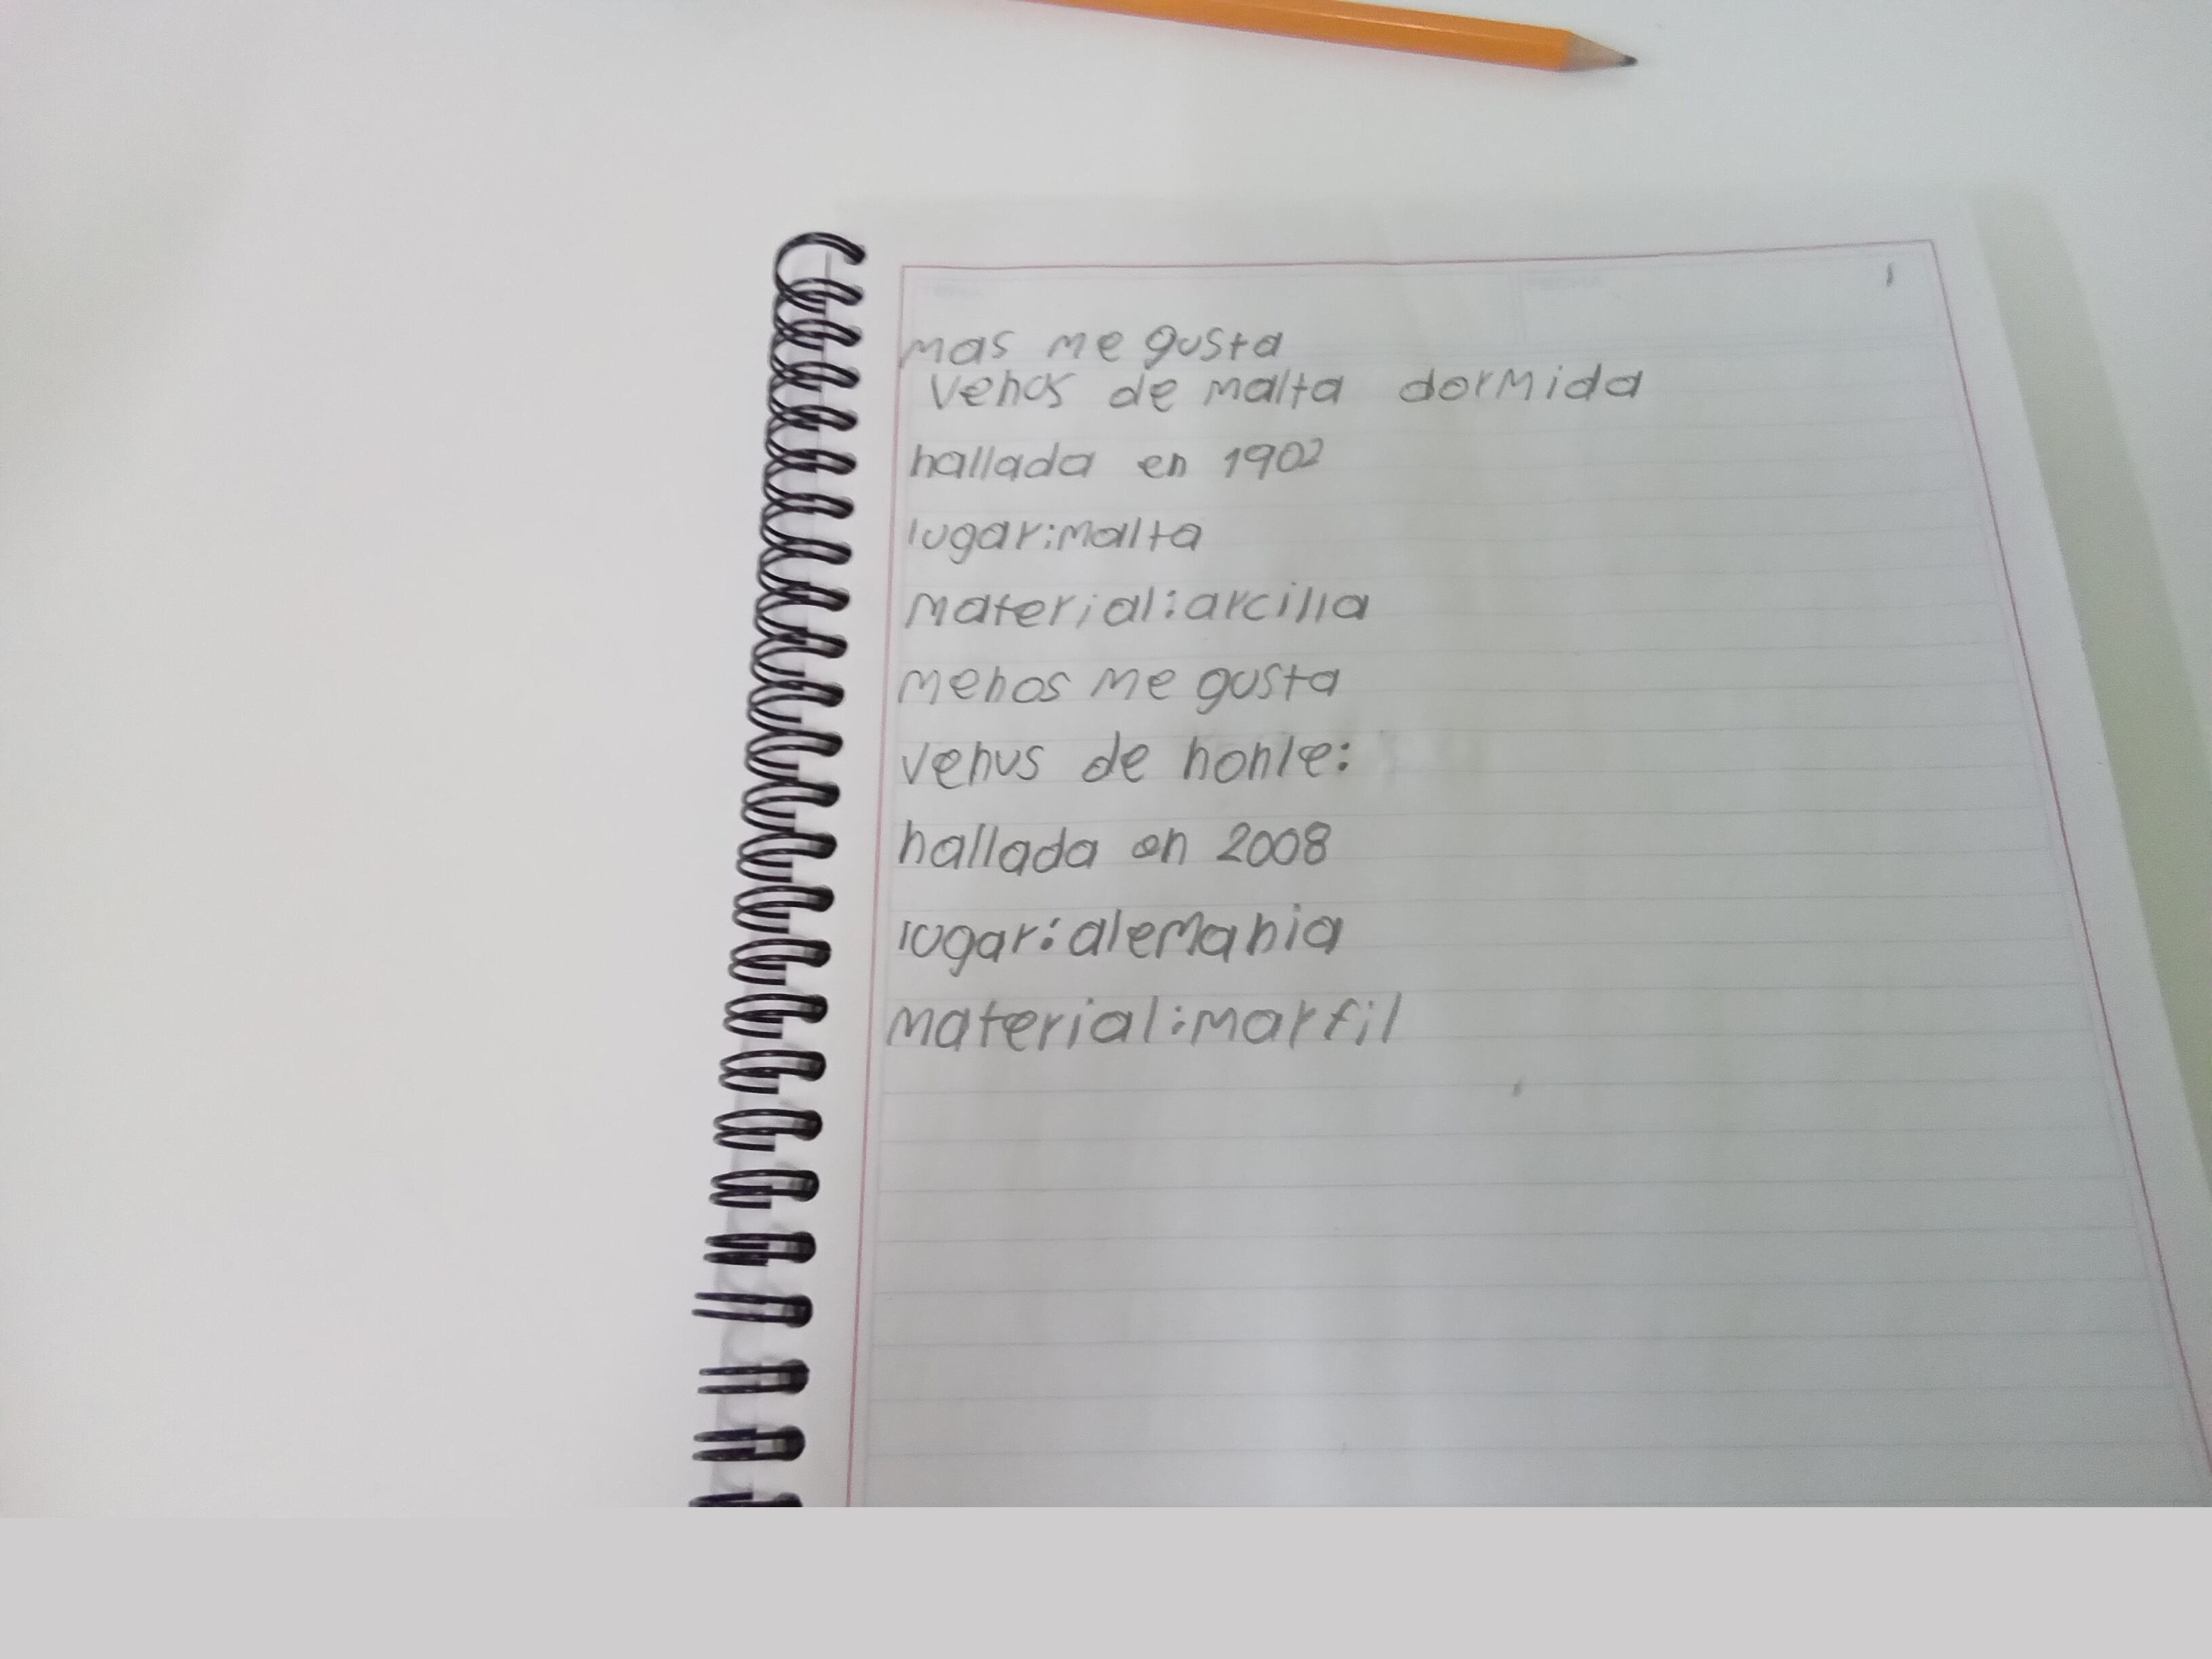 mas me gusta
venus de malta dormida
hallada en 1902
lugar:malta
material:arcilla
menos me gusta
venus de hohle:
hallada en 2008
lugar:alemania
material:marfil